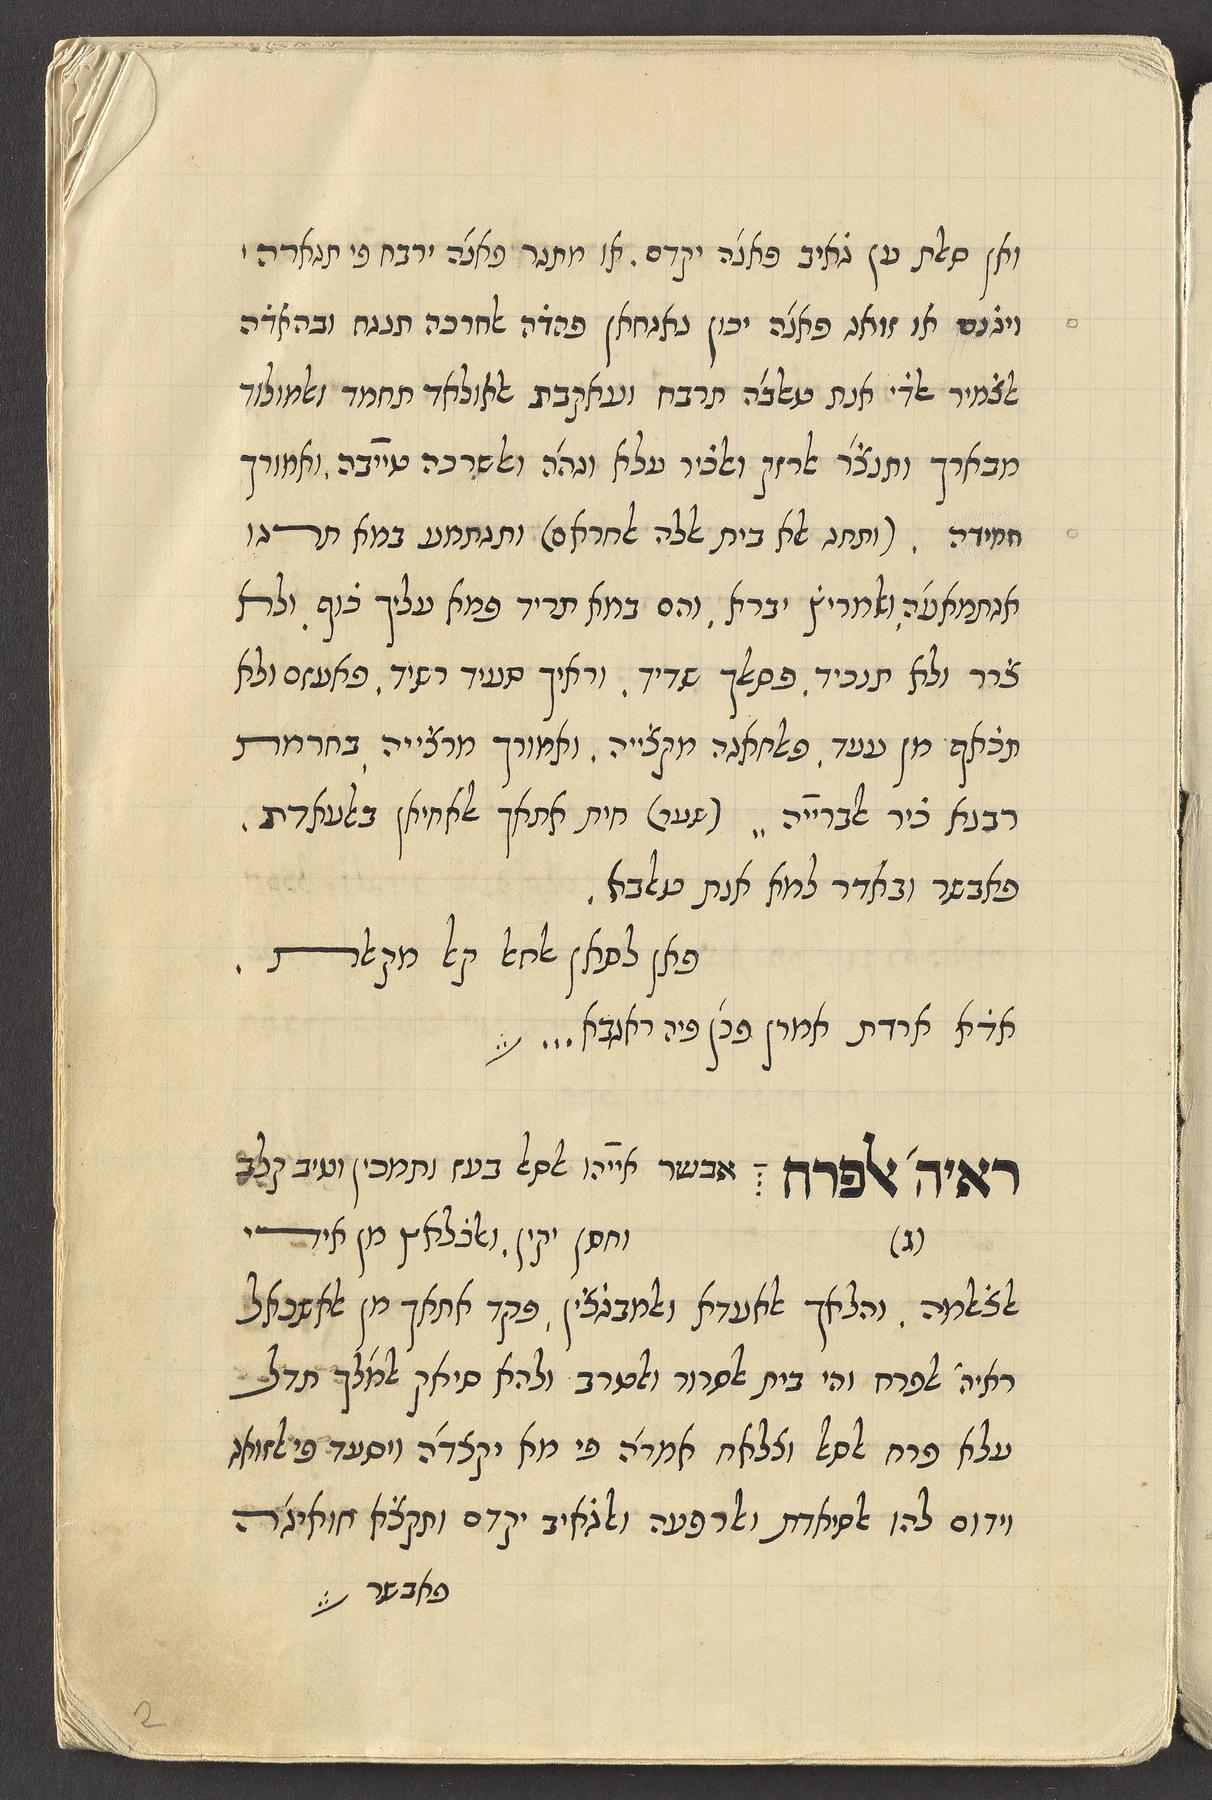 ואן סאלת ען גׄאיב פאנׄה יקדם. או מתגר פאנׄה ירבח פי תגארה י
ויגׄנם או זואג פאנׄה יכון נאגחאן פהדׄה אלחרכה תנגח ובהאדׄה
אלצׄמיר אלדׄי אנת טאלבׄה תרבח ועאקבת אלאולאד תחמד ואלמולוד
מבארך ותנצׄר ארזק ואלכׄיר עלא וגהׄה ואלשרכה טייבה. ואמורך
חמידה . (ותחג אלא בית אללה אלחראם) ותגתמע במא תרגו
אגתמאעׄה, ואלמריץׄ יברא, והם במא תריד פמא עליך כׄוף. ולא
צׄרר ולא תנכיד. פסאלך שדיד. וראיך סעיד רשיד. פאעזם ולא
תכׄאף מן ענד. פאלחאגה מקצׄייה. ואמורך מרצׄייה, בחרמת
רבנא כׄיר אלברייה „ (שער) חית אתאך אלאחיאן באלעאדת.
פאבשר ובאדר למא אנת טאלבא.
פאן לסאן אלחאל קאל מקאלת .
אדׄא ארדת אמרן פכׄן פיה ראגבא...
ראיה׳ אלפרח אבשר אייהו אלסאל בעז ותמכין וטיב קלב
(ג) וחסן יקין. ואלכׄלאץ מן אידי
אלצׄאלמה. והלאך אלאעדא ואלמבגׄצׄין, פקד אתאך מן אלאשכאל
ראיה׳ אלפרח והי בית אלסרור ואלטרב ולהא סיאק אלמלך תדל
עלא פרח אלסאל וצלאח אמרׄה פי מא יקצדׄה ויסעד פי אלזואג
וידום להו אלסיאדת ואלרפעה ואלגׄאיב יקדם ותקצׄא חואיגׄה
פאבשר
2